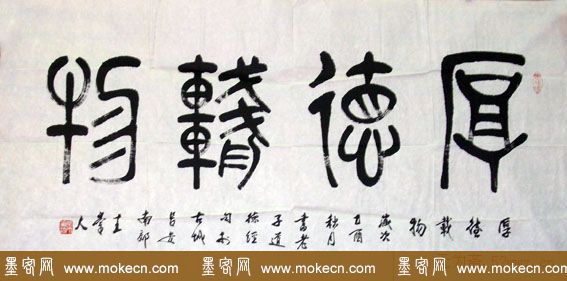 厚德載物
厚德載物
歲次
乙酉
秋月
書老
子道
德經
句於
古城
長安
南郭
人
墨客网 www.mokecn.com 墨客网 www.mokecn.com 墨客网 www.mokecn.com